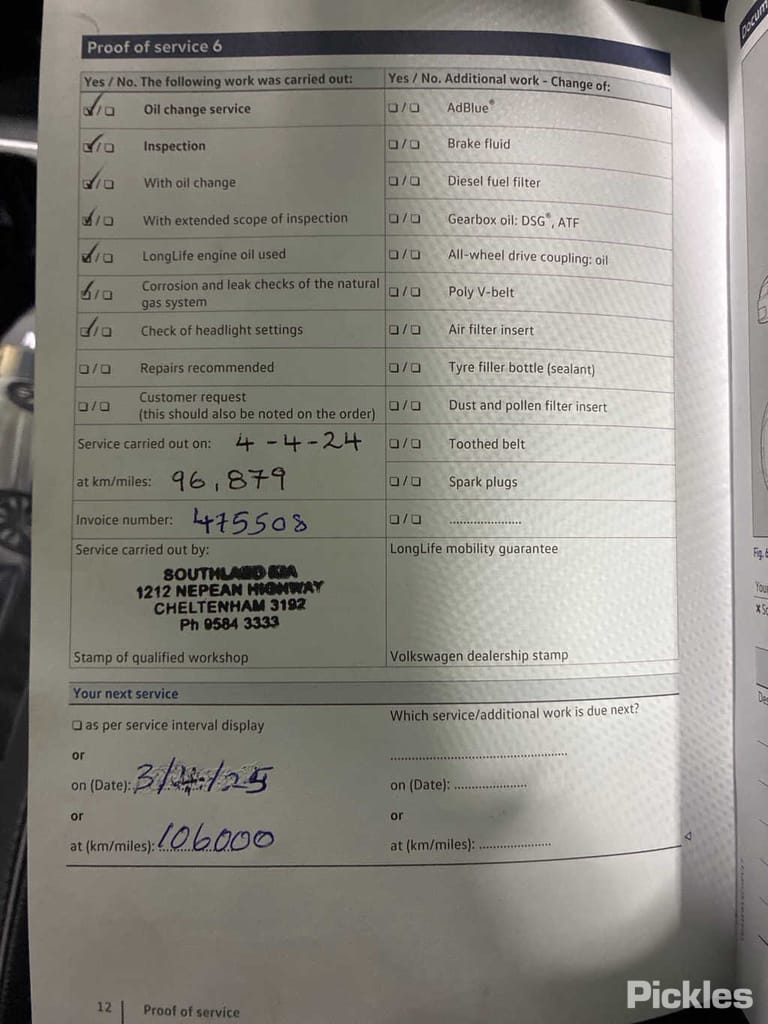 Proof of service 6
Yes / No. The following work was carried out:
☑/☐ Oil change service
☑/☐ Inspection
☑/☐ With oil change
☑/☐ With extended scope of inspection
☑/☐ LongLife engine oil used
☑/☐ Corrosion and leak checks of the natural
gas system
☑/☐ Check of headlight settings
☐/☐ Repairs recommended
☐/☐ Customer request
(this should also be noted on the order)
Service carried out on: 4-4-24
at km/miles: 96,879
Invoice number: 475508
Service carried out by:
SOUTHLAND KIA
1212 NEPEAN HIGHWAY
CHELTENHAM 3192
Ph 9584 3333
Stamp of qualified workshop
Yes / No. Additional work - Change of:
☐/☐ AdBlue®
☐/☐ Brake fluid
☐/☐ Diesel fuel filter
☐/☐ Gearbox oil: DSG®, ATF
☐/☐ All-wheel drive coupling: oil
☐/☐ Poly V-belt
☐/☐ Air filter insert
☐/☐ Tyre filler bottle (sealant)
☐/☐ Dust and pollen filter insert
☐/☐ Toothed belt
☐/☐ Spark plugs
☐/☐ .....................
LongLife mobility guarantee
Volkswagen dealership stamp
Your next service
☐ as per service interval display
or
on (Date): 3/4/25
or
at (km/miles): 106000
Which service/additional work is due next?
....................................................
on (Date): .....................
or
at (km/miles): .....................
12 | Proof of service
Fig.
Pickles